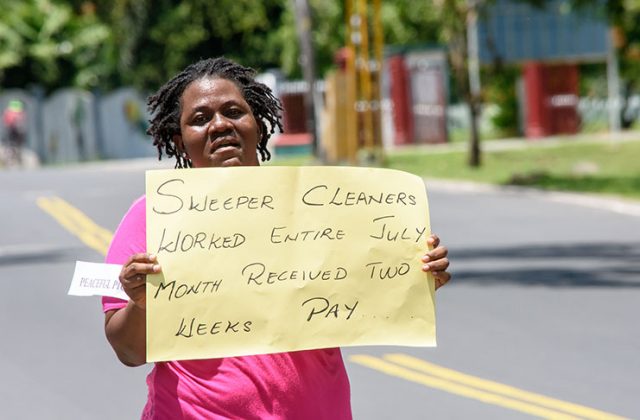 Sweeper Cleaners
Worked Entire July
Month Received Two
Weeks Pay....
PEACEFUL